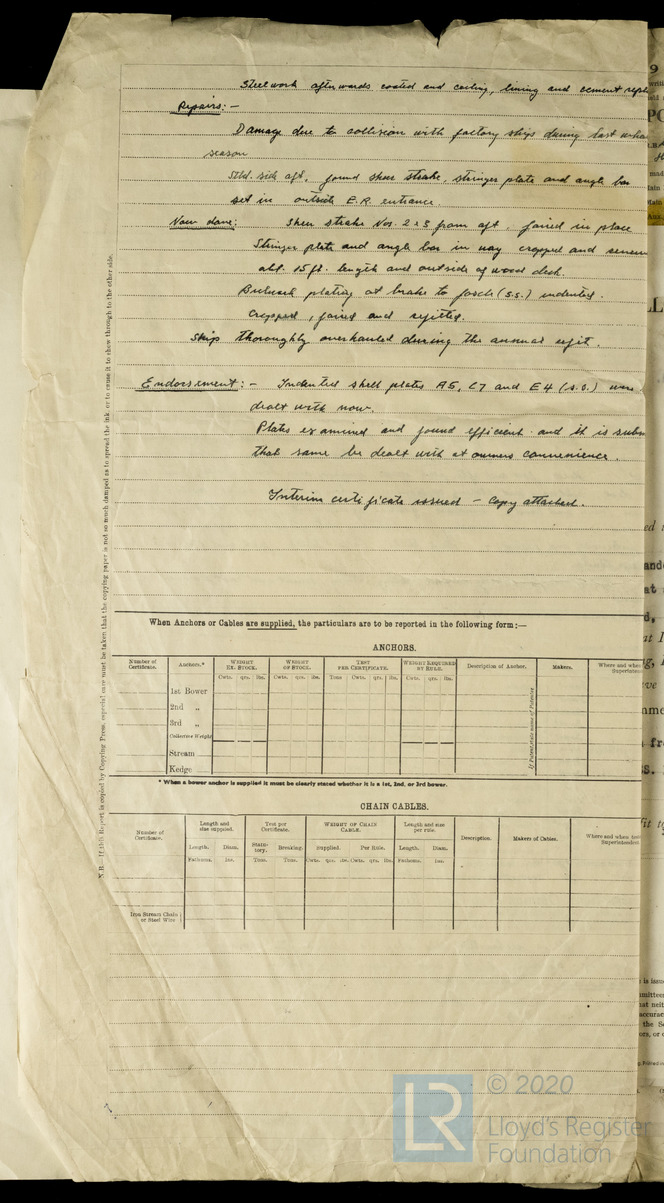 Steelwork afterwards coated and ceiling, lining and cement repl
Repairs:-
Damage due to collision with factory ships during last wha
season
Stbd. side aft, found sheer strake, stringer plate and angle bar
set in outside E.R. entrance.
Now done: Sheer strake Nos. 2 & 3 from aft, faired in place
Stringer plate and angle bar in way cropped and renew
abt. 15 ft. length and outside of wood deck.
Bulwark plating at brake to focsle (s.s.) indented.
Cropped, faired and refitted.
Ship thoroughly overhauled during the annual refit.
Endorsement:- Indented shell plates A5, C7 and E4 (s.s.) were
dealt with now.
Plates examined and found efficient and it is subm
that same be dealt with at owners convenience.
Interim certificate issued - Copy attached.
When Anchors or Cables are supplied, the particulars are to be reported in the following form;—
ANCHORS.
Number of Certificate. Anchors.* WEIGHT EX. STOCK. WEIGHT OF STOCK. TEST PER CERTIFICATE. WEIGHT REQUIRED BY RULE. Description of Anchor. Makers. Where and when Superintendent
Cwts. qrs. lbs. Cwts. qrs. lbs. Tons Cwts. qrs. lbs. Cwts. qrs. lbs.
1st Bower
2nd „
3rd „
Collective Weight
Stream
Kedge
If Patent state name of Patentee
* When a bower anchor is supplied it must be clearly stated whether it is a 1st, 2nd, or 3rd bower.
CHAIN CABLES.
Number of Certificate. Length and size supplied. Test per Certificate. WEIGHT OF CHAIN CABLE. Length and size per rule. Description. Makers of Cables. Where and when
Superintendent
Length. Diam. Statutory. Breaking. Supplied. Per Rule. Length. Diam.
Fathoms. Ins. Tons. Tons. Cwts. qrs. lbs. Cwts. qrs. lbs. Fathoms. Ins.
Iron Stream Chain
or Steel Wire
N.B.—If this Report is copied by Copying Press, especial care must be taken that the copying paper is not so much damped as to spread the ink, or to cause it to show through to the other side.
LR
© 2020
Lloyd's Register
Foundation